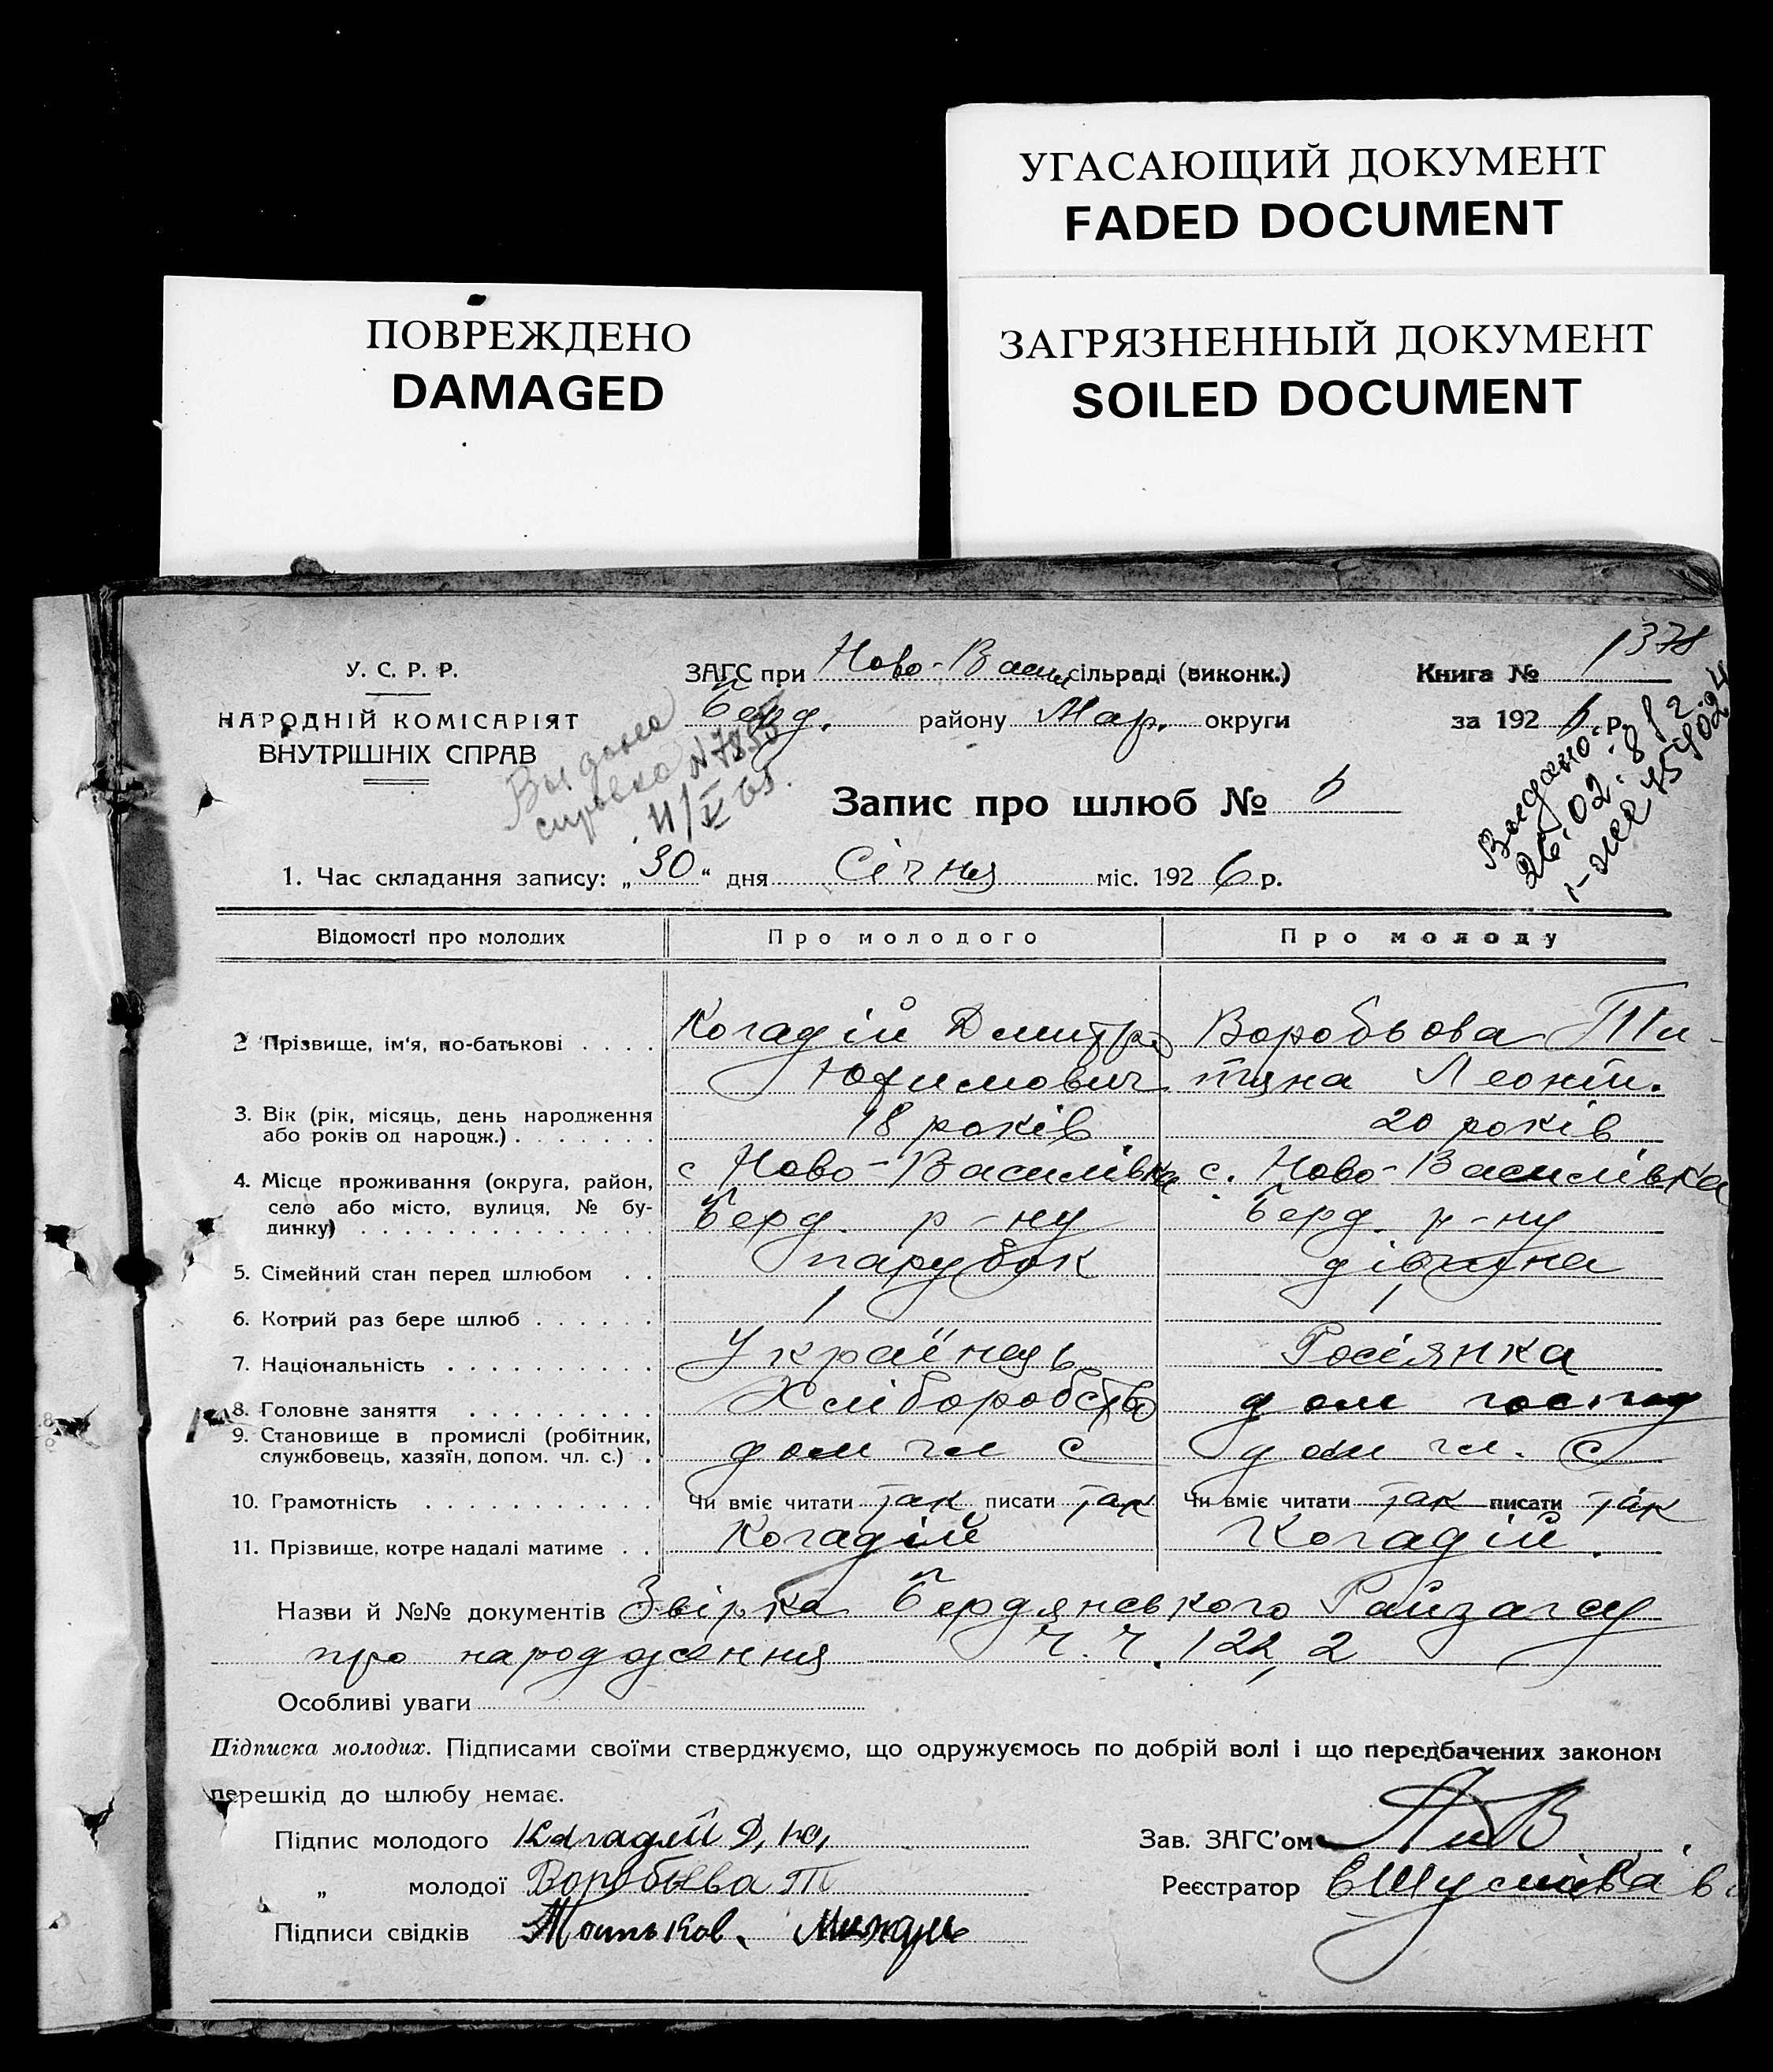 УГАСАЮЩИЙ ДОКУМЕНТ
FADED DOCUMENT
ПОВРЕЖДЕНО
DAMAGED
ЗАГРЯЗНЕННЫЙ ДОКУМЕНТ
SOILED DOCUMENT
1378
У. С. Р. Р.
НАРОДНІЙ КОМІСАРІЯТ
ВНУТРІШНІХ СПРАВ
ЗАГС при Ново-Васил сільраді (виконк.)
Берд. району Мар. округи
Книга №
за 192 6 р.
Выдана
справка №7855
11/V 65.
Выдано:
26.02.81 г.
Запис про шлюб № 6
1. Час складання запису: „30“ дня Січня міс. 192 6 р.
Відомості про молодих Про молодого Про молоду
2 Прізвище, ім'я, по-батькові . . . . Когадій Дмитро Воробьова Ти-
Юхимович тяна Леонт.
3. Вік (рік, місяць, день народження
або років од народж.) . . . . . . . 18 років 20 років
4. Місце проживання (округа, район, с Ново-Василівка с. Ново-Василівка
село або місто, вулиця, № бу-
динку) . . . . . . . . . . . . . . Берд. р-ну Берд. р-ну
5. Сімейний стан перед шлюбом . . парубок дівчина
6. Котрий раз бере шлюб . . . . . . 1 1
7. Національність . . . . . . . . . . Українець Росіянка
8. Головне заняття . . . . . . . . . Хліборобство дом господ
9. Становище в промислі (робітник,
службовець, хазяїн, допом. чл. с.) . доп чл с доп чл. с
10. Грамотність . . . . . . . . . . . Чи вміє читати так писати так Чи вміє читати так писати так
11. Прізвище, котре надалі матиме . . Когадій Когадій.
Назви й №№ документів Звірка Бердянського Райзагсу
про народження ч. ч. 122, 2
Особливі уваги
Підписка молодих. Підписами своїми стверджуємо, що одружуємось по добрій волі і що передбачених законом
перешкід до шлюбу немає.
Підпис молодого Кагадій Д. Ю. Зав. ЗАГС'ом
„ молодої Воробьева Т Реєстратор
Підписи свідків